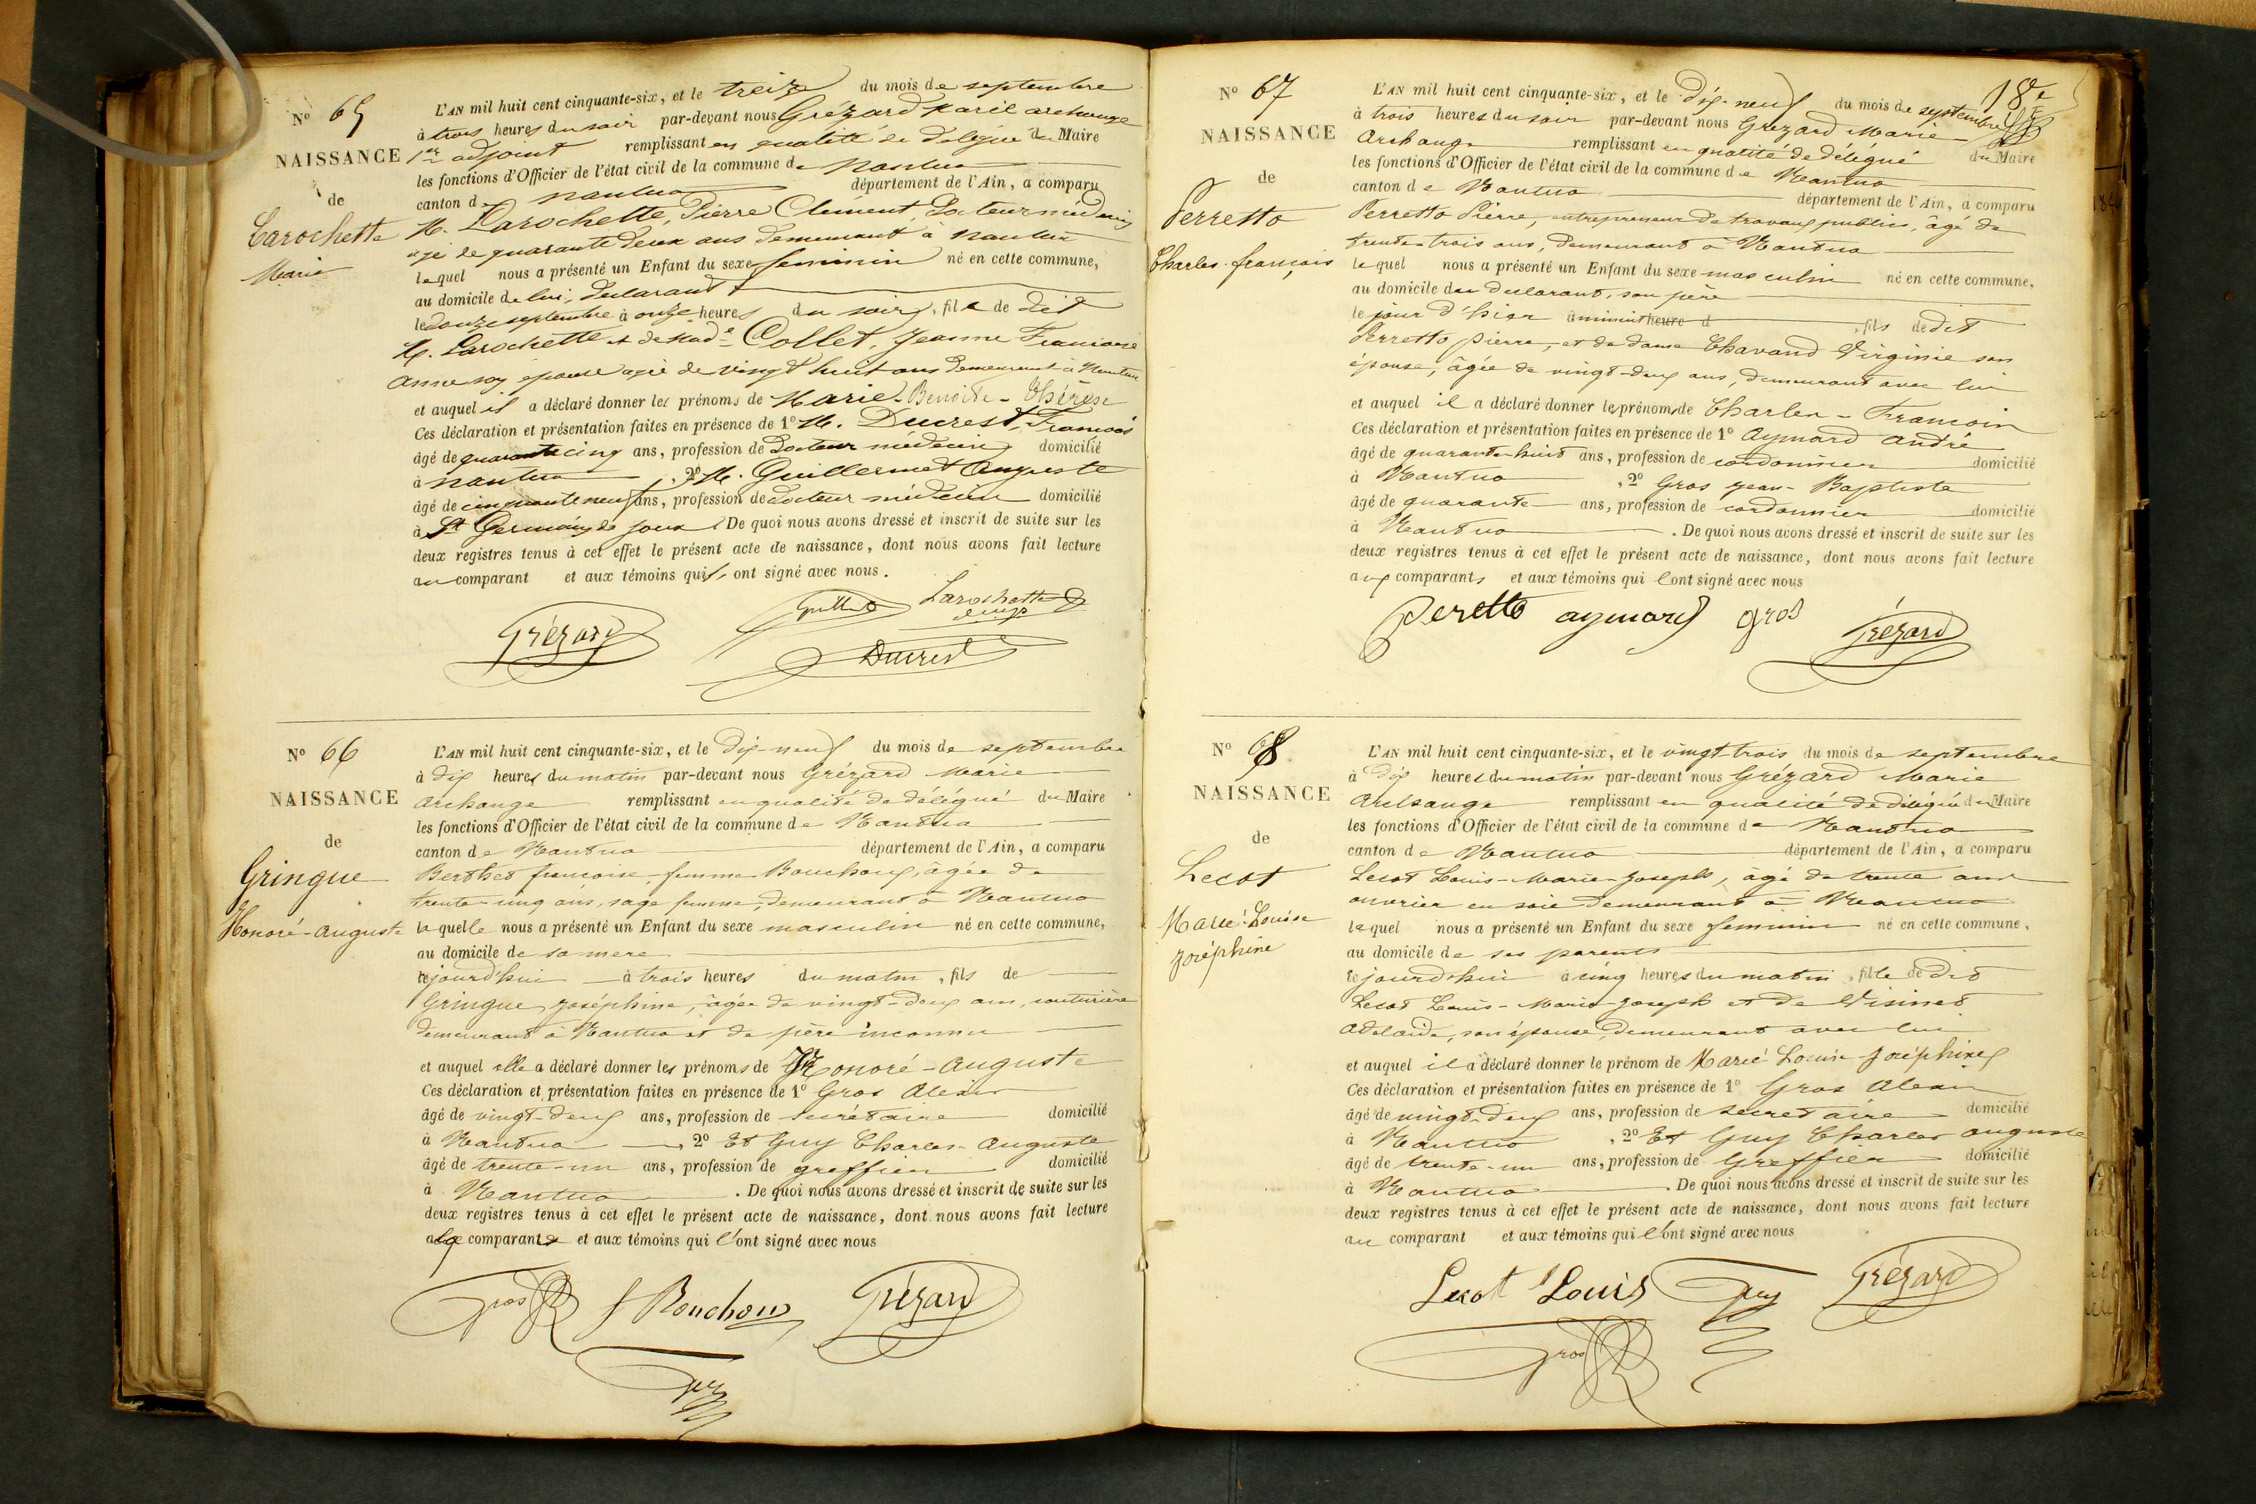 No 65
NAISSANCE
de
Larochette
Marie
L'AN mil huit cent cinquante-six, et le treize du mois de septembre
à trois heures du soir par-devant nous Grézard Marie archange
1er adjoint remplissant en qualité de délégué du Maire
les fonctions d'Officier de l'état civil de la commune de Nantua
canton de Nantua département de l'Ain, a comparu
M. Larochette, Pierre Clément, Docteur médecin
agé de quarante deux ans demeurant à Nantua
lequel nous a présenté un Enfant du sexe feminin né en cette commune,
au domicile de lui, declarant
le douze septembre à onze heures du soir, fille de dit
M. Larochette et de Made Collet, Jeanne Francoise
Anne son épouse agée de vingt huit ans demeurant à Nantua
et auquel il a déclaré donner les prénoms de Marie-Benoite-Thérèse
Ces déclaration et présentation faites en présence de 1o M. Ducrest, François
âgé de quarante cinq ans, profession de Docteur médecin domicilié
à Nantua, 2o M. Guillermet Auguste
âgé de cinquante neuf ans, profession de docteur médecin domicilié
à St Germain de Joux. De quoi nous avons dressé et inscrit de suite sur les
deux registres tenus à cet effet le présent acte de naissance, dont nous avons fait lecture
au comparant et aux témoins qui, ont signé avec nous.
Larochette
Grézard
Ducrest
No 66
NAISSANCE
de
Gringue
Honoré-Auguste
L'AN mil huit cent cinquante-six, et le dix-neuf du mois de septembre
à dix heures du matin par-devant nous Grézard Marie
Archange remplissant en qualité de délégué du Maire
les fonctions d'Officier de l'état civil de la commune de Nantua
canton de Nantua département de l'Ain, a comparu
Berthet francoise, femme Bouchoux, âgée de
trente-cinq ans, sage femme, demeurant à Nantua
laquelle nous a présenté un Enfant du sexe masculin né en cette commune,
au domicile de sa mere
cejourd'hui à trois heures du matin, fils de
Gringue Joséphine, âgée de vingt-deux ans, couturière
demeurant à Nantua et de père inconnu
et auquel elle a déclaré donner les prénoms de Honoré-Auguste
Ces déclaration et présentation faites en présence de 1o Gros Alexis
âgé de vingt-deux ans, profession de secrétaire domicilié
à Nantua, 2o Et Guy Charles-Auguste
âgé de trente-un ans, profession de greffier domicilié
à Nantua. De quoi nous avons dressé et inscrit de suite sur les
deux registres tenus à cet effet le présent acte de naissance, dont nous avons fait lecture
comparant et aux témoins qui l'ont signé avec nous
Gros f Bouchoux Grézard
Guy
18e
No 67
NAISSANCE
de
Perretto
Charles-françois
L'AN mil huit cent cinquante-six, et le dix-neuf du mois de septembre
à trois heures du soir par-devant nous Grezard Marie
Archange remplissant en qualité de délégué du Maire
les fonctions d'Officier de l'état civil de la commune de Nantua
canton de Nantua département de l'Ain, a comparu
Perretto Pierre, entrepreneur de travaux publics, âgé de
trente-trois ans, demeurant à Nantua
lequel nous a présenté un Enfant du sexe masculin né en cette commune,
au domicile du declarant, son père
le jour d'hier à minuit heure d, fils de dit
Perretto pierre, et de dame Chavand Virginie son
épouse, âgée de vingt-deux ans, demeurant avec lui
et auquel il a déclaré donner les prénoms de Charles-Francois
Ces déclaration et présentation faites en présence de 1o Aymard André
âgé de quarante-huit ans, profession de cordonnier domicilié
à Nantua, 2o Gros jean-Baptiste
âgé de quarante ans, profession de cordonnier domicilié
à Nantua. De quoi nous avons dressé et inscrit de suite sur les
deux registres tenus à cet effet le présent acte de naissance, dont nous avons fait lecture
aux comparants et aux témoins qui l'ont signé avec nous
Peretto aymard gros Grézard
No 68
NAISSANCE
de
Lecot
Marie-Louise
joséphine
L'AN mil huit cent cinquante-six, et le vingt trois du mois de septembre
à dix heures du matin par-devant nous Grézard Marie
Archange remplissant en qualité de délégué du Maire
les fonctions d'Officier de l'état civil de la commune de Nantua
canton de Nantua département de l'Ain, a comparu
Lecot Louis-Marie-Joseph, âgé de trente ans
ouvrier en soie demeurant à Nantua
lequel nous a présenté un Enfant du sexe feminin né en cette commune,
au domicile de ses parents
cejourd'hui à cinq heures du matin, fille de dit
Lecot Louis-Marie-Joseph et de Visinet
Adelaide, son épouse, demeurant avec lui
et auquel il a déclaré donner le prénom de Marie Louise Joséphine
Ces déclaration et présentation faites en présence de 1o Gros Alexis
âgé de vingt-deux ans, profession de secretaire domicilié
à Nantua, 2o Et Guy Charles auguste
âgé de trente-un ans, profession de Greffier domicilié
à Nantua. De quoi nous avons dressé et inscrit de suite sur les
deux registres tenus à cet effet le présent acte de naissance, dont nous avons fait lecture
au comparant et aux témoins qui l'ont signé avec nous
Lecot Louis Guy Grézard
Gros